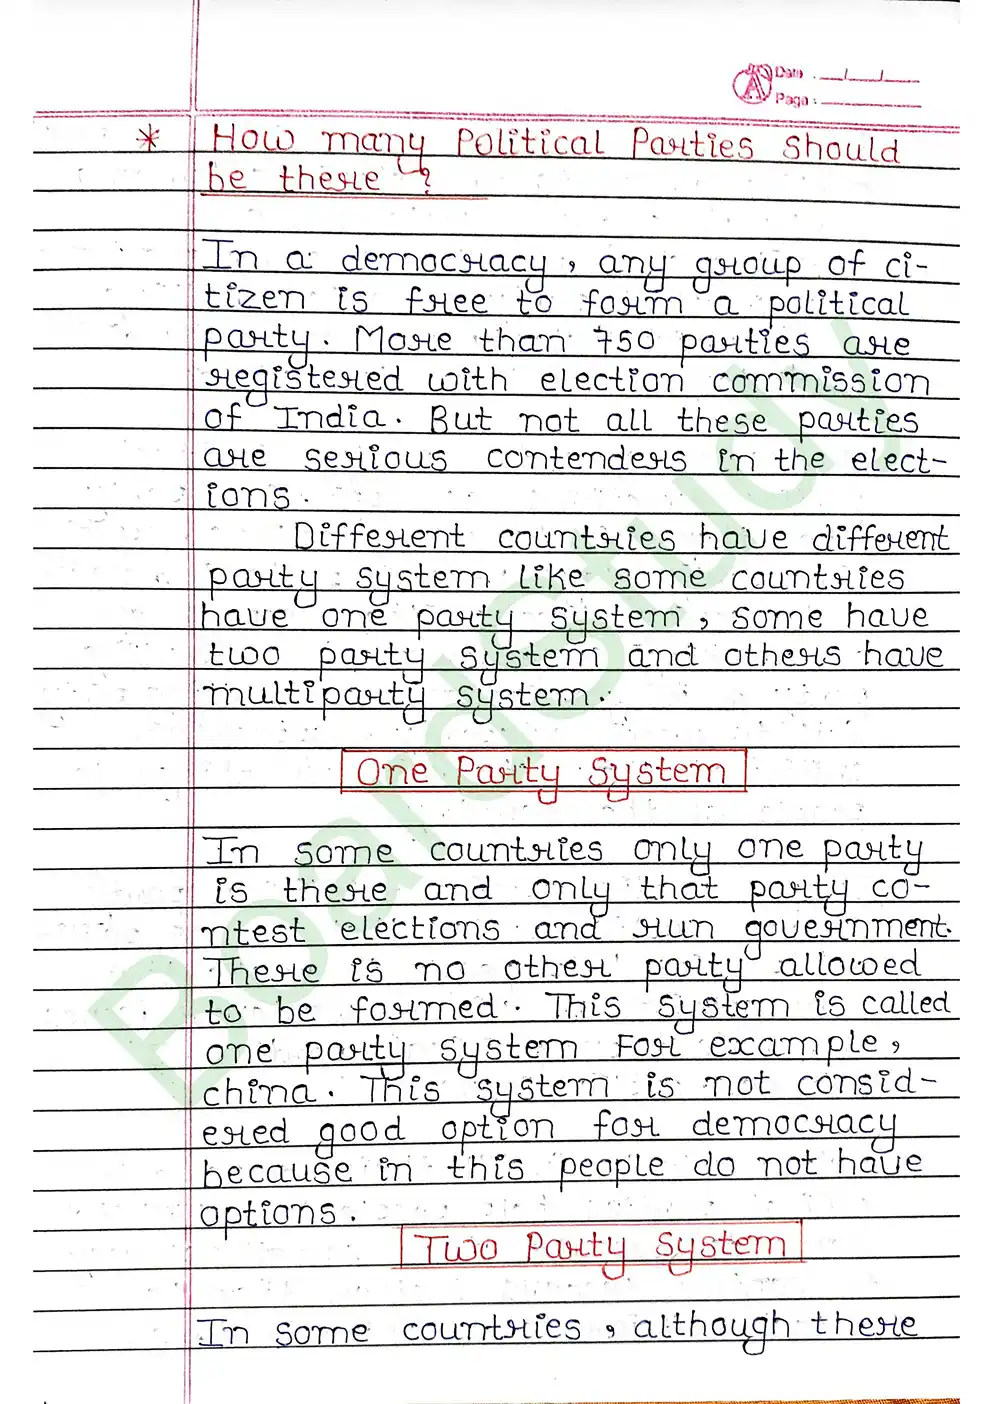 Date : __/__/__
Page : ______
* How many Political Parties should
be there ?
In a democracy, any group of ci-
tizen is free to form a political
party. More than 750 parties are
registered with election commission
of India. But not all these parties
are serious contenders in the elect-
ions.
Different countries have different
party system like some countries
have one party system, some have
two party system and others have
multiparty system.
One Party System
In some countries only one party
is there and only that party co-
ntest elections and run government.
There is no other party allowed
to be formed. This system is called
one party system For example,
china. This system is not consid-
ered good option for democracy
because in this people do not have
options.
Two Party System
In some countries, although there
BoardStudy